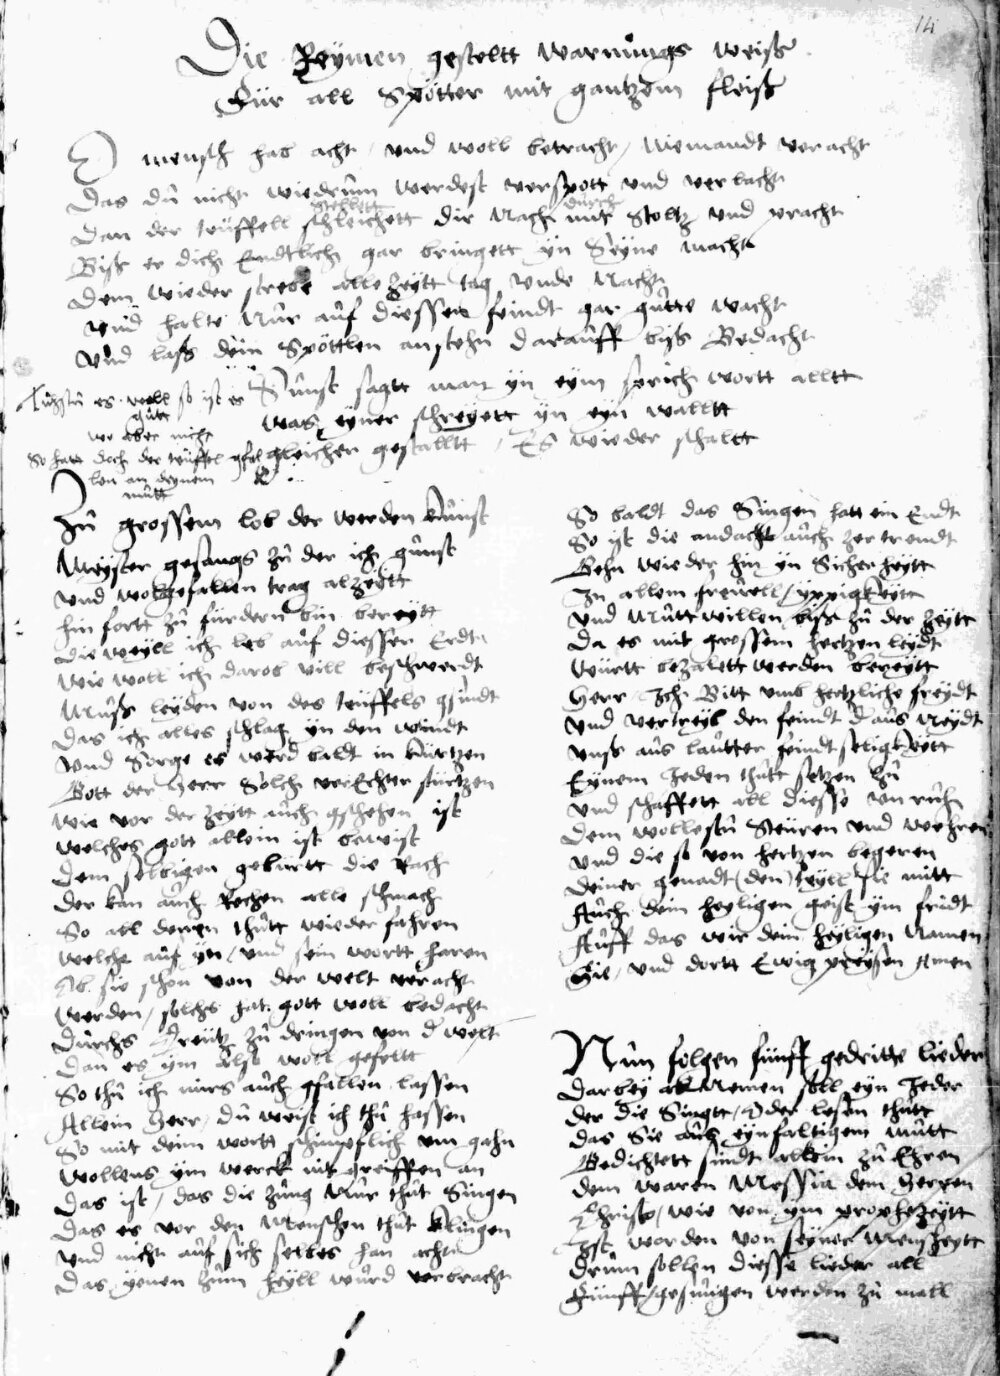 14
Die Reÿmen gesteltt warnungs weiß
Für all Spötter mit gantzem fleiß
O mensch hab acht / und woll betracht / Niemandt veracht
Das dü nicht wiedrüm werdest verspott und verlacht
stellett dürch
Dan der teüffell schleichett dir Nach mit Stoltz und pracht
Biß er dich Endtlich gar bringett ÿn Seÿne macht
Dem wieder strebe alle Zeÿtt tag unde Nacht
und halte Nür aüf diessen feindt gar gütte wacht
und laß dein Spöttlen anstehn daraüff biß Bedacht
Sünst sagtt man ÿn eÿm sprich wortt alltt
was eÿner schreÿett ÿn eÿn walltt
gleicher gestalltt / Es wieder schaltt
es woll so ist es
gütt
wo aber nicht
So hatt doch der teüffel gfal
len an deÿnem
mütt
Zü grossem lob der werden künst
Meÿster gesangs zü der ich günst
und wolgefallen trag alzeÿtt
hin fortt zü fürdern bin bereÿtt
die weÿll ich leb aüf diesser Erdt
wie woll ich darob vill beschwerdt
Müß leÿden von des teüffels gsindt
Das ich alles schlag ÿn den windt
und Sorge es werd baldt in kürtzen
Gott der Herr Solch verächter stürtzen
wie vor der Zeÿtt aüch gschehen ist
welches gott allein ist bewist
Dem selbigen gebürtt die Rach
der kan aüch Rechen alle schmach
So all denen thütt wieder fahren
welche aüf ÿn / und sein wortt haren
Ob sie schon von der welt veracht
werden / solchs hat gott woll bedacht
dürchs Creütz zü dringen von d welt
Dan es ÿm also woll gefeltt
So thü ich mirs aüch gfallen lassen
Allein Herr / dü weist ich thü hassen
So mit deim wortt schimpflich um gahn
wollens ÿm werck nit greiffen an
Das ist / das die züng Nür thüt Singen
Das es vor den Menschen thüt klingen
und nicht aüf sich selbes han acht
Das ÿenen züm heÿll würd verbracht
So baldt das Singen hatt ein Endt
So ist die andacht aüch zertrendt
Gehn wieder hin ÿn Sicherheÿtt
Zü allem freüell / üppigkeÿtt
und Müttwillen biß zü der Zeÿtt
Da es mit grossem hertzen leÿdt
württ bezalett werden bereÿtt
Herr / Ich Bitt umb hertzliche freÿdt
und vertreÿb den feindt d aüs Neÿdt
unß aüs laütter feindtseligkeÿtt
Eÿnem Jeden thütt setzen zü
und schaffett all diesse unrüh
Dem wollestü Steüren und wehren
und die so von hertzen begeren
deiner genadt (den) teÿll sie mitt
Aüch dein heÿligen geist ÿm fridt
Aüff das wir dein heÿligen Namen
Hie / und dortt Ewig preÿsen Amen
Nün folgen fünff gedritte lieder
Darbeÿ abNemen soll eÿn Jeder
der die Singtt / Oder lesen thütt
das Sie aüs eÿnfaltigem mütt
Gedichtett sindt allein zü Ehren
dem waren Messia dem Herren
Christo / wie von ÿm propheZeÿtt
Ist worden von seÿner Menscheÿtt
drüm sollen diesse lieder all
Fünff / gesüngen werden zü mall